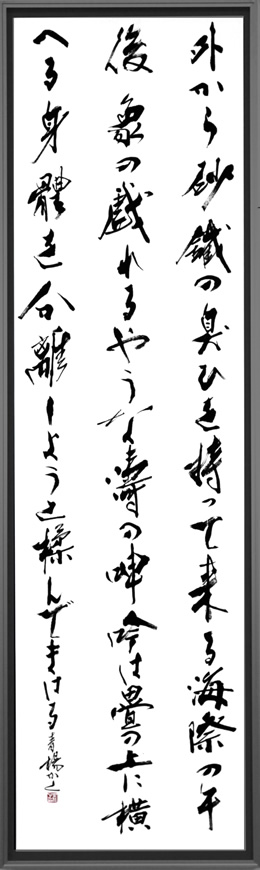 外から砂鐵の臭ひを持つて来る海際の午
後象の戯れるやうな濤の呻吟は畳の上に横
へる身體を分離しようと揉んでまはる